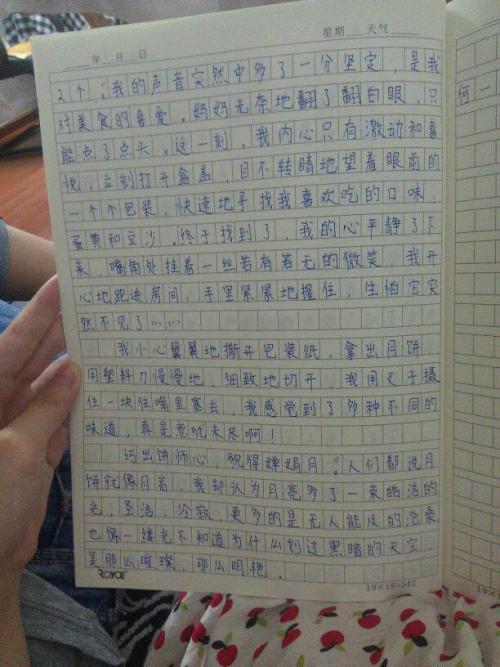 星期 天气
年 月 日
2个。”我的声音突然中多了一分坚定，是我
对美食的喜爱。妈妈无奈地翻了翻白眼，只
能点了点头。这一刻，我内心只有激动和喜
悦，立刻打开盒盖，目不转睛地望着眼前的
一个个包装，快速地寻找我喜欢吃的口味，
蛋黄和豆沙。终于找到了，我的心平静了下
来，嘴角处挂着一丝若有若无的微笑，我开
心地跑进房间，手里紧紧地握住，生怕它突
然不见了……
我小心翼翼地撕开包装纸，拿出月饼
用塑料刀慢慢地、细致地切开，我用叉子摄
住一块往嘴里塞去，我感觉到了多种不同的
味道，真是意犹未尽啊！
巧出饼师心，貌得婵娟月。”人们都说月
饼就像月亮，我却认为月亮多了一束皓洁的
光，圣洁、冷寂，更多的是无人能及的沧桑
也像一缕光不知道为什么划过黑暗的天空
是那么璀璨，那么明艳。
ROYCE
19×18=342
何一
19×